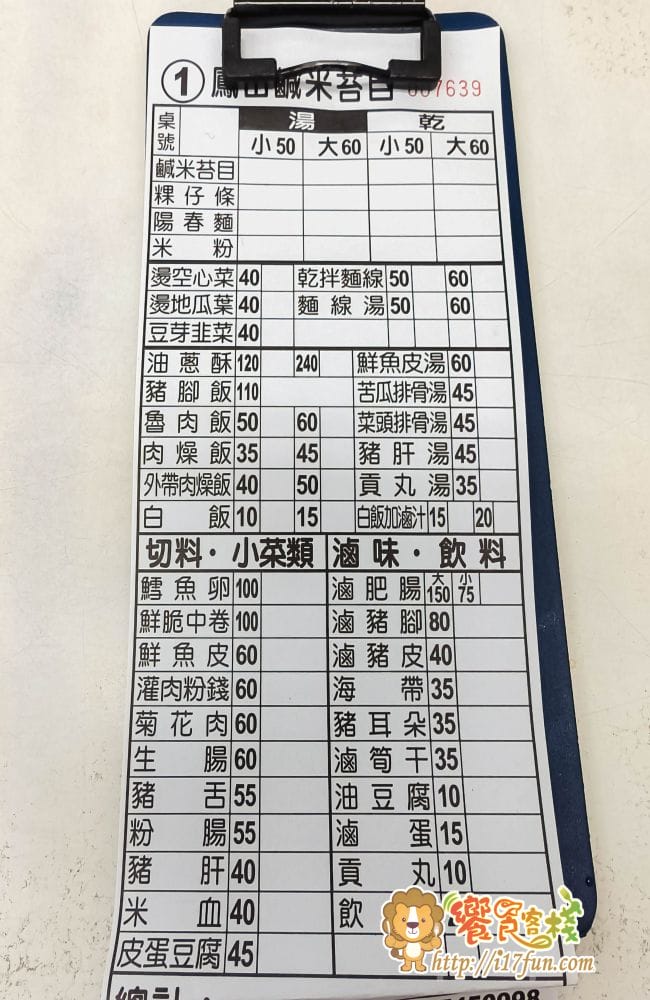 ① 鳳山鹹米苔目 007639
桌號 湯 乾
小50 大60 小50 大60
鹹米苔目
粿仔條
陽春麵
米粉
燙空心菜 40 乾拌麵線 50 60
燙地瓜葉 40 麵線湯 50 60
豆芽韭菜 40
油蔥酥 120 240 鮮魚皮湯 60
豬腳飯 110 苦瓜排骨湯 45
魯肉飯 50 60 菜頭排骨湯 45
肉燥飯 35 45 豬肝湯 45
外帶肉燥飯 40 50 貢丸湯 35
白飯 10 15 白飯加滷汁 15 20
切料·小菜類 滷味·飲料
鱈魚卵 100 滷肥腸 大150 小75
鮮脆中卷 100 滷豬腳 80
鮮魚皮 60 滷豬皮 40
灌肉粉錢 60 海帶 35
菊花肉 60 豬耳朵 35
生腸 60 滷筍干 35
豬舌 55 油豆腐 10
粉腸 55 滷蛋 15
豬肝 40 貢丸 10
米血 40 飲
皮蛋豆腐 45
總計：
饗食客棧
http://i17fun.com